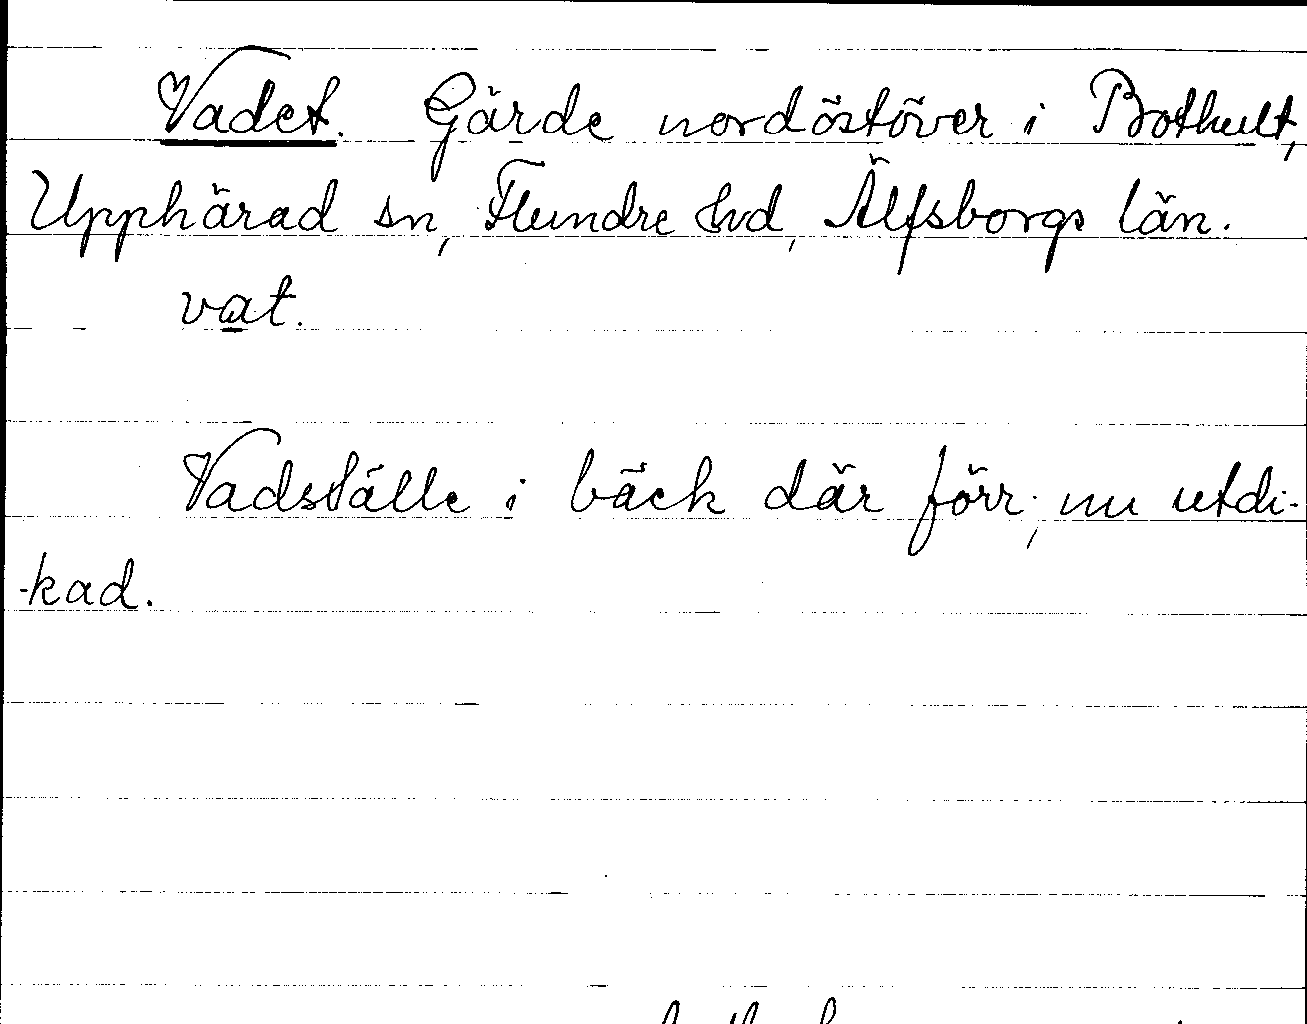 Vadet. Gärde nordöstöver i Bothult,
Upphärad sn, Flundre hd, Älfsborgs län.
vat.
Vadställe i bäck där förr; nu utdi-
-kad.